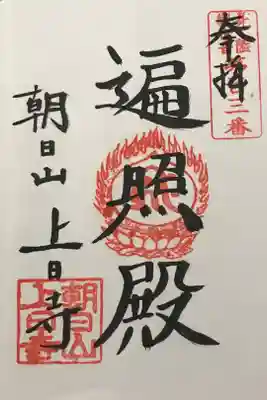 奉拝
遍照殿
朝日山上日寺
朝日山
上日寺